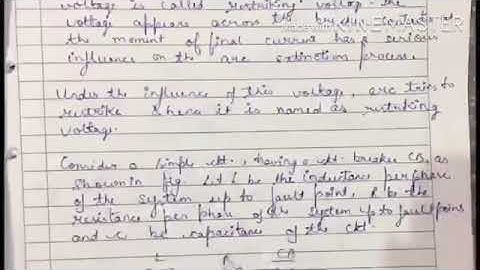 voltage is called restriking voltage. The
voltage appears across the breaker contacts at
the moment of final current has a serious
influence on the arc extinction process.
Under the influence of this voltage, arc tries to
restrike & hence it is named as restriking
voltage.
Consider a simple ckt., having a ckt. breaker CB, as
shown in fig. Let L be the inductance per phase
of the system up to fault point, R be the
resistance per phase of the system up to fault points
and C be capacitance of the ckt.
L R CB